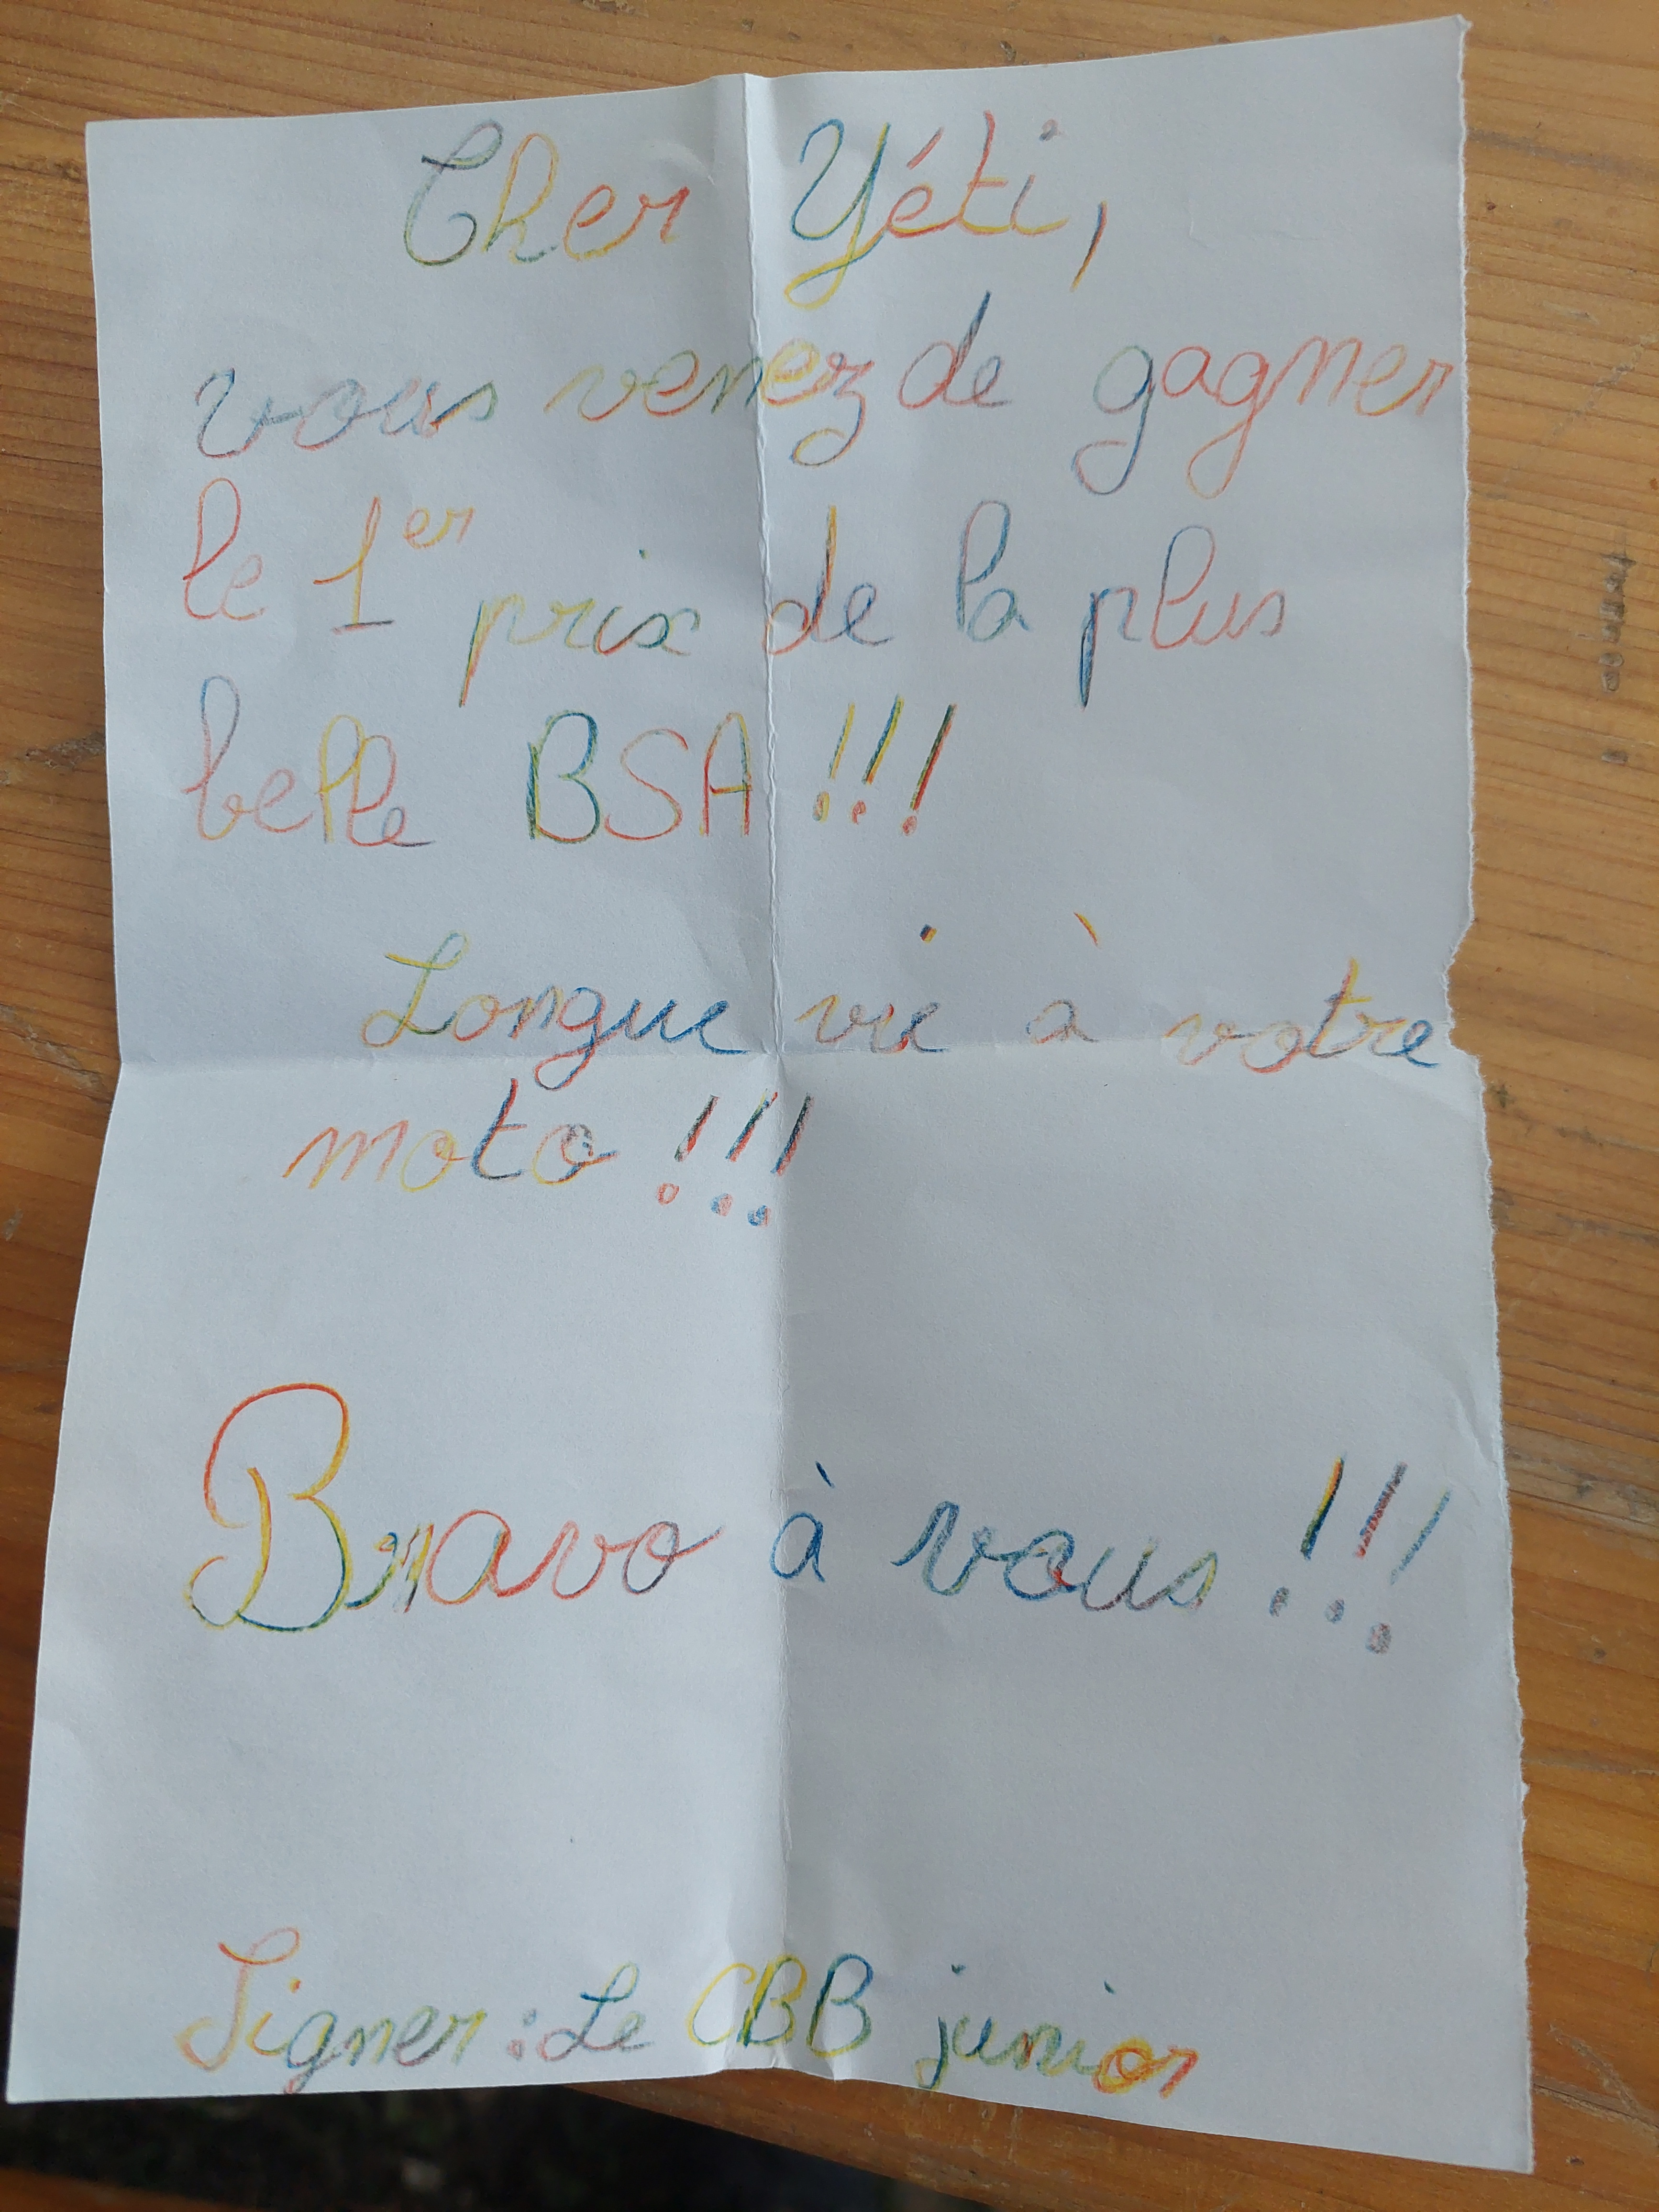 Cher Yéti,
vous venez de gagner
le 1er prix de la plus
belle BSA !!!
Longue vie à votre
moto !!!
Bravo à vous !!!
Signer : Le CBB junior